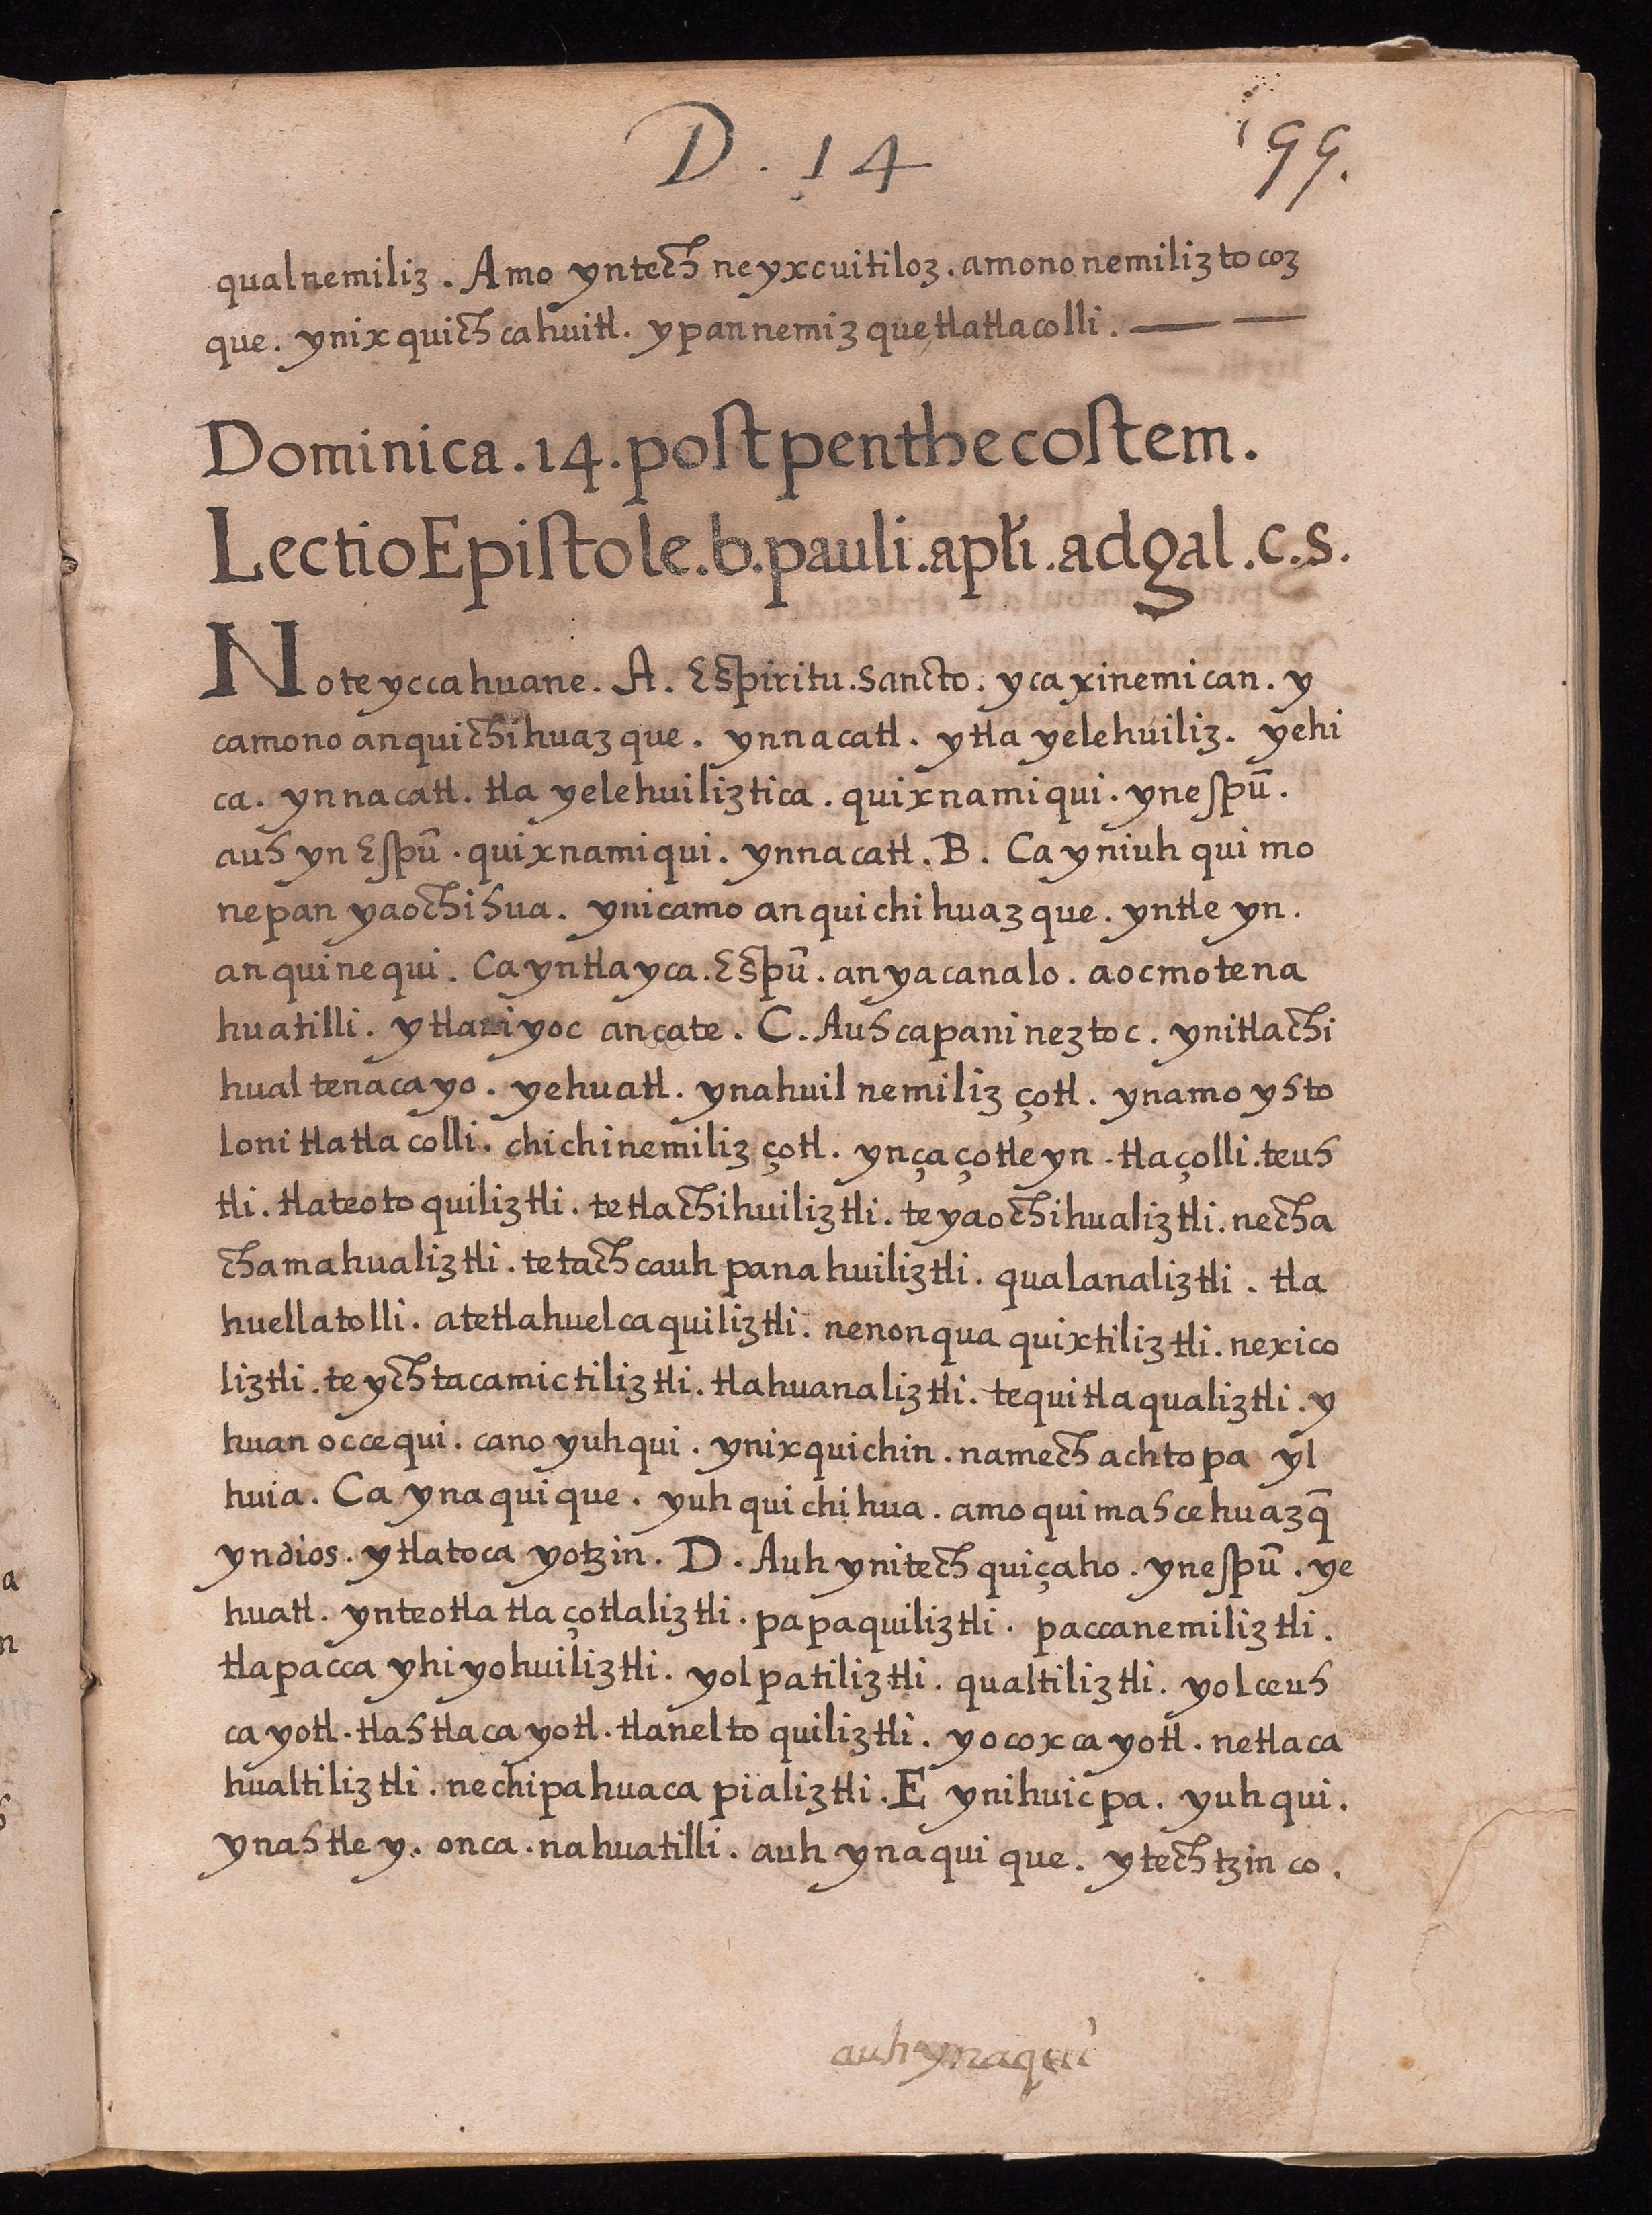 D. 14
199.
qualnemiliz. Amo yntech neyxcuitiloz. amono nemiliz tocoz
que. ynix quich cahuitl. ypan nemiz que, tlatlacolli. — —
Dominica. 14. post penthecostem.
Lectio Epistole. b. pauli. apłi. ad gal. c. s.
Noteyccahuane. A. Espiritu. Sancto. yca xinemican. y
camono anquichihuaz que. ynnacatl. ytla yelehuiliz. yehi
ca. ynnacatl. tla yelehuiliztica. quixnamiqui. ynespũ.
auh yn Espũ. quixnamiqui. ynnacatl. B. Ca yniuh qui mo
nepan yaochihua. ynicamo anquichihuaz que. yntle yn.
anquinequi. Ca yntla yca. Espũ. anyacanalo. aocmo tena
huatilli. ytlaniyoc ancate. C. Auh capani neztoc. ynitlachi
hual tenacayo. yehuatl. ynahuil nemiliz çotl. ynamo yhto
loni tlatlacolli. chichinemiliz çotl. ynçaçotleyn. tlaçolli. teuh
tli. tlateotoquiliztli. tetlachihuiliztli. teyaochihualiztli. necha
chamahualiztli. tetachcauh panahuiliztli. qualanaliztli. tla
huellatolli. atetlahuelcaquiliztli. nenonqua quixtiliztli. nexico
liztli. teychtacamictiliztli. tlahuanaliztli. tequitlaqualiztli. y
huan occequi. cano yuhqui. ynixquichin. namech achtopa yl
huia. Ca ynaquique. yuh quichihua. amo quimahcehuazq̃
yndios. ytlatocayotzin. D. Auh ynitech quiçaho. ynespũ. ye
huatl. ynteotlatlaçotlaliztli. papaquiliztli. paccanemiliztli.
tlapacca yhiyohuiliztli. yolpatiliztli. qualtiliztli. yolceuh
cayotl. tlahtlacayotl. tlaneltoquiliztli. yocoxcayotl. netlaca
hualtiliztli. nechipahuaca pializtli. E ynihuicpa. yuhqui.
ynahtley. onca. nahuatilli. auh ynaquique. ytechtzinco.
auh ynaqui